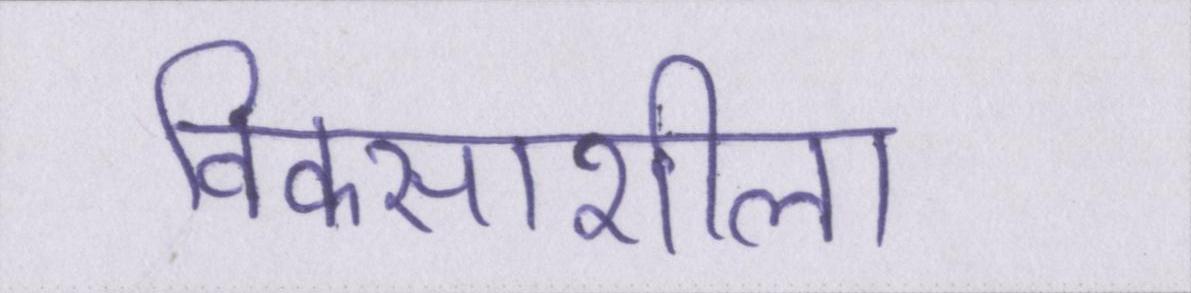 विकसाशीला